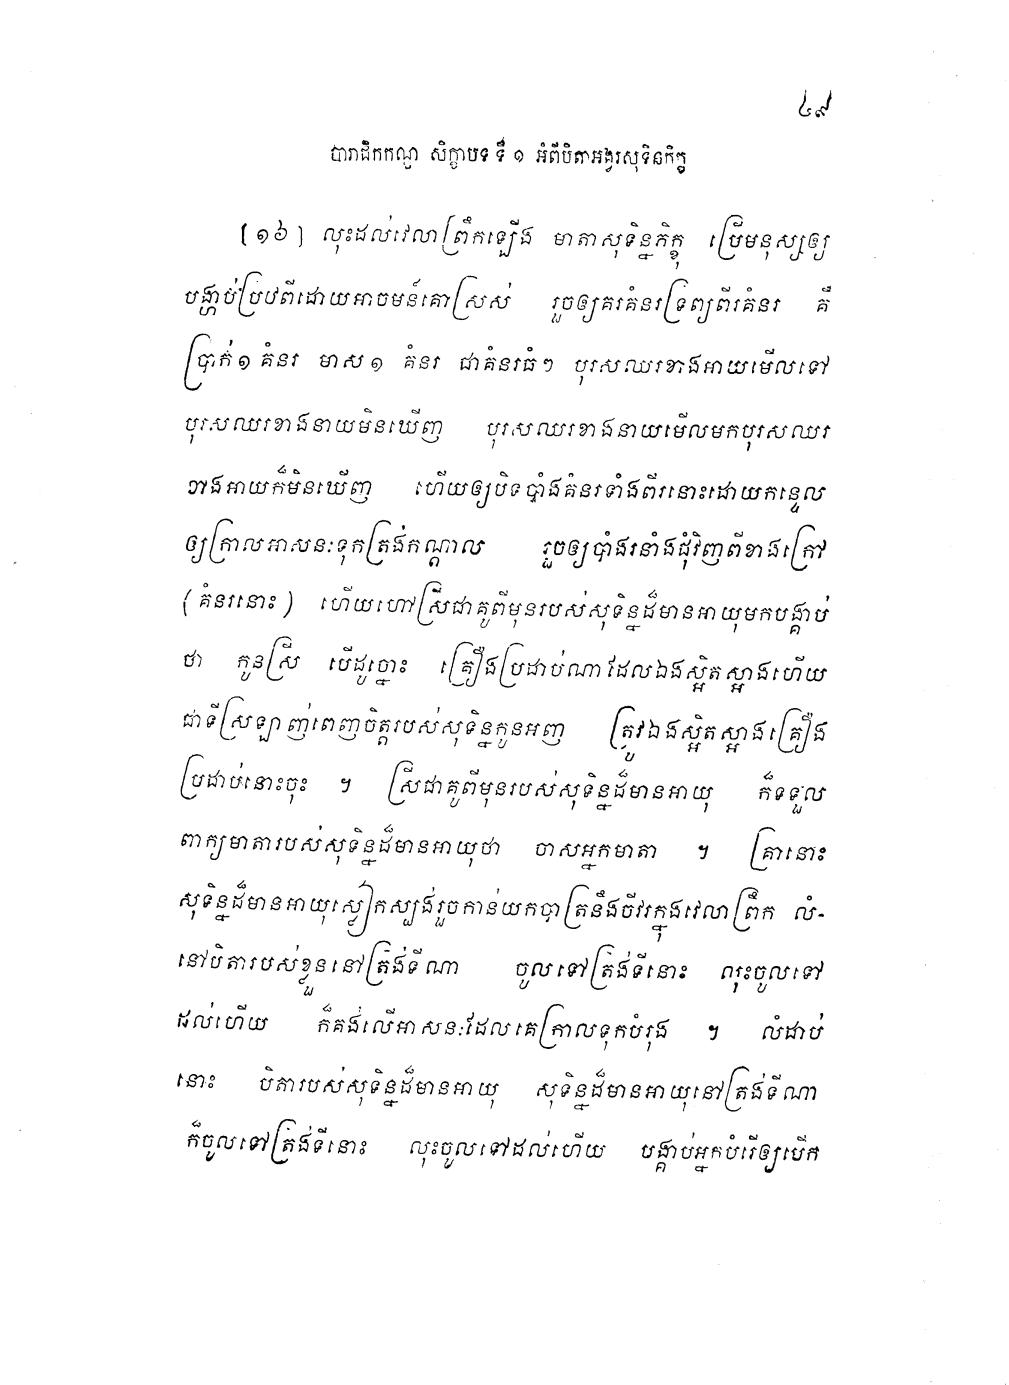 ៤៩
បារាជិកកណ្ឌ សិក្ខាបទទី ១ អំពីបិតាអង្វរសុទិនភិក្ខុ
[១៦] លុះដល់វេលាព្រឹកឡើង មាតាសុទិន្នភិក្ខុ ប្រើមនុស្សឲ្យ
បង្ហាប់ប្រឋពីដោយអាចមន៍គោស្រស់ រួចឲ្យគរគំនរទ្រព្យពីរគំនរ គឺ
ប្រាក់១គំនរ មាស១ គំនរ ជាគំនរធំៗ បុរសឈរខាងអាយមើលទៅ
បុរសឈរខាងនាយមិនឃើញ បុរសឈរខាងនាយមើលមកបុរសឈរ
ខាងអាយក៏មិនឃើញ ហើយឲ្យបិទបាំងគំនរទាំងពីរនោះដោយកន្ទេល
ឲ្យក្រាលអាសនៈទុកត្រង់កណ្តាល រួចឲ្យបាំងរនាំងជុំវិញពីខាងក្រៅ
(គំនរនោះ) ហើយហៅស្រីជាគូពីមុនរបស់សុទិន្នដ៏មានអាយុមកបង្គាប់
ថា កូនស្រី បើដូច្នោះ គ្រឿងប្រដាប់ណាដែលឯងស្អិតស្អាងហើយ
ជាទីស្រឡាញ់ពេញចិត្តរបស់សុទិន្នកូនអញ ត្រូវឯងស្អិតស្អាងគ្រឿង
ប្រដាប់នោះចុះ ។ ស្រីជាគូពីមុនរបស់សុទិន្នដ៏មានអាយុ ក៏ទទួល
ពាក្យមាតារបស់សុទិន្នដ៏មានអាយុថា ចាសអ្នកមាតា ។ គ្រានោះ
សុទិន្នដ៏មានអាយុស្លៀកស្បង់រួចកាន់យកបាត្រនឹងចីវរក្នុងវេលាព្រឹក លំ-
នៅបិតារបស់ខ្លួននៅត្រង់ទីណា ចូលទៅត្រង់ទីនោះ លុះចូលទៅ
ដល់ហើយ ក៏គង់លើអាសនៈដែលគេក្រាលទុកបំរុង ។ លំដាប់
នោះ បិតារបស់សុទិន្នដ៏មានអាយុ សុទិន្នដ៏មានអាយុនៅត្រង់ទីណា
ក៏ចូលទៅត្រង់ទីនោះ លុះចូលទៅដល់ហើយ បង្គាប់អ្នកបំរើឲ្យបើក